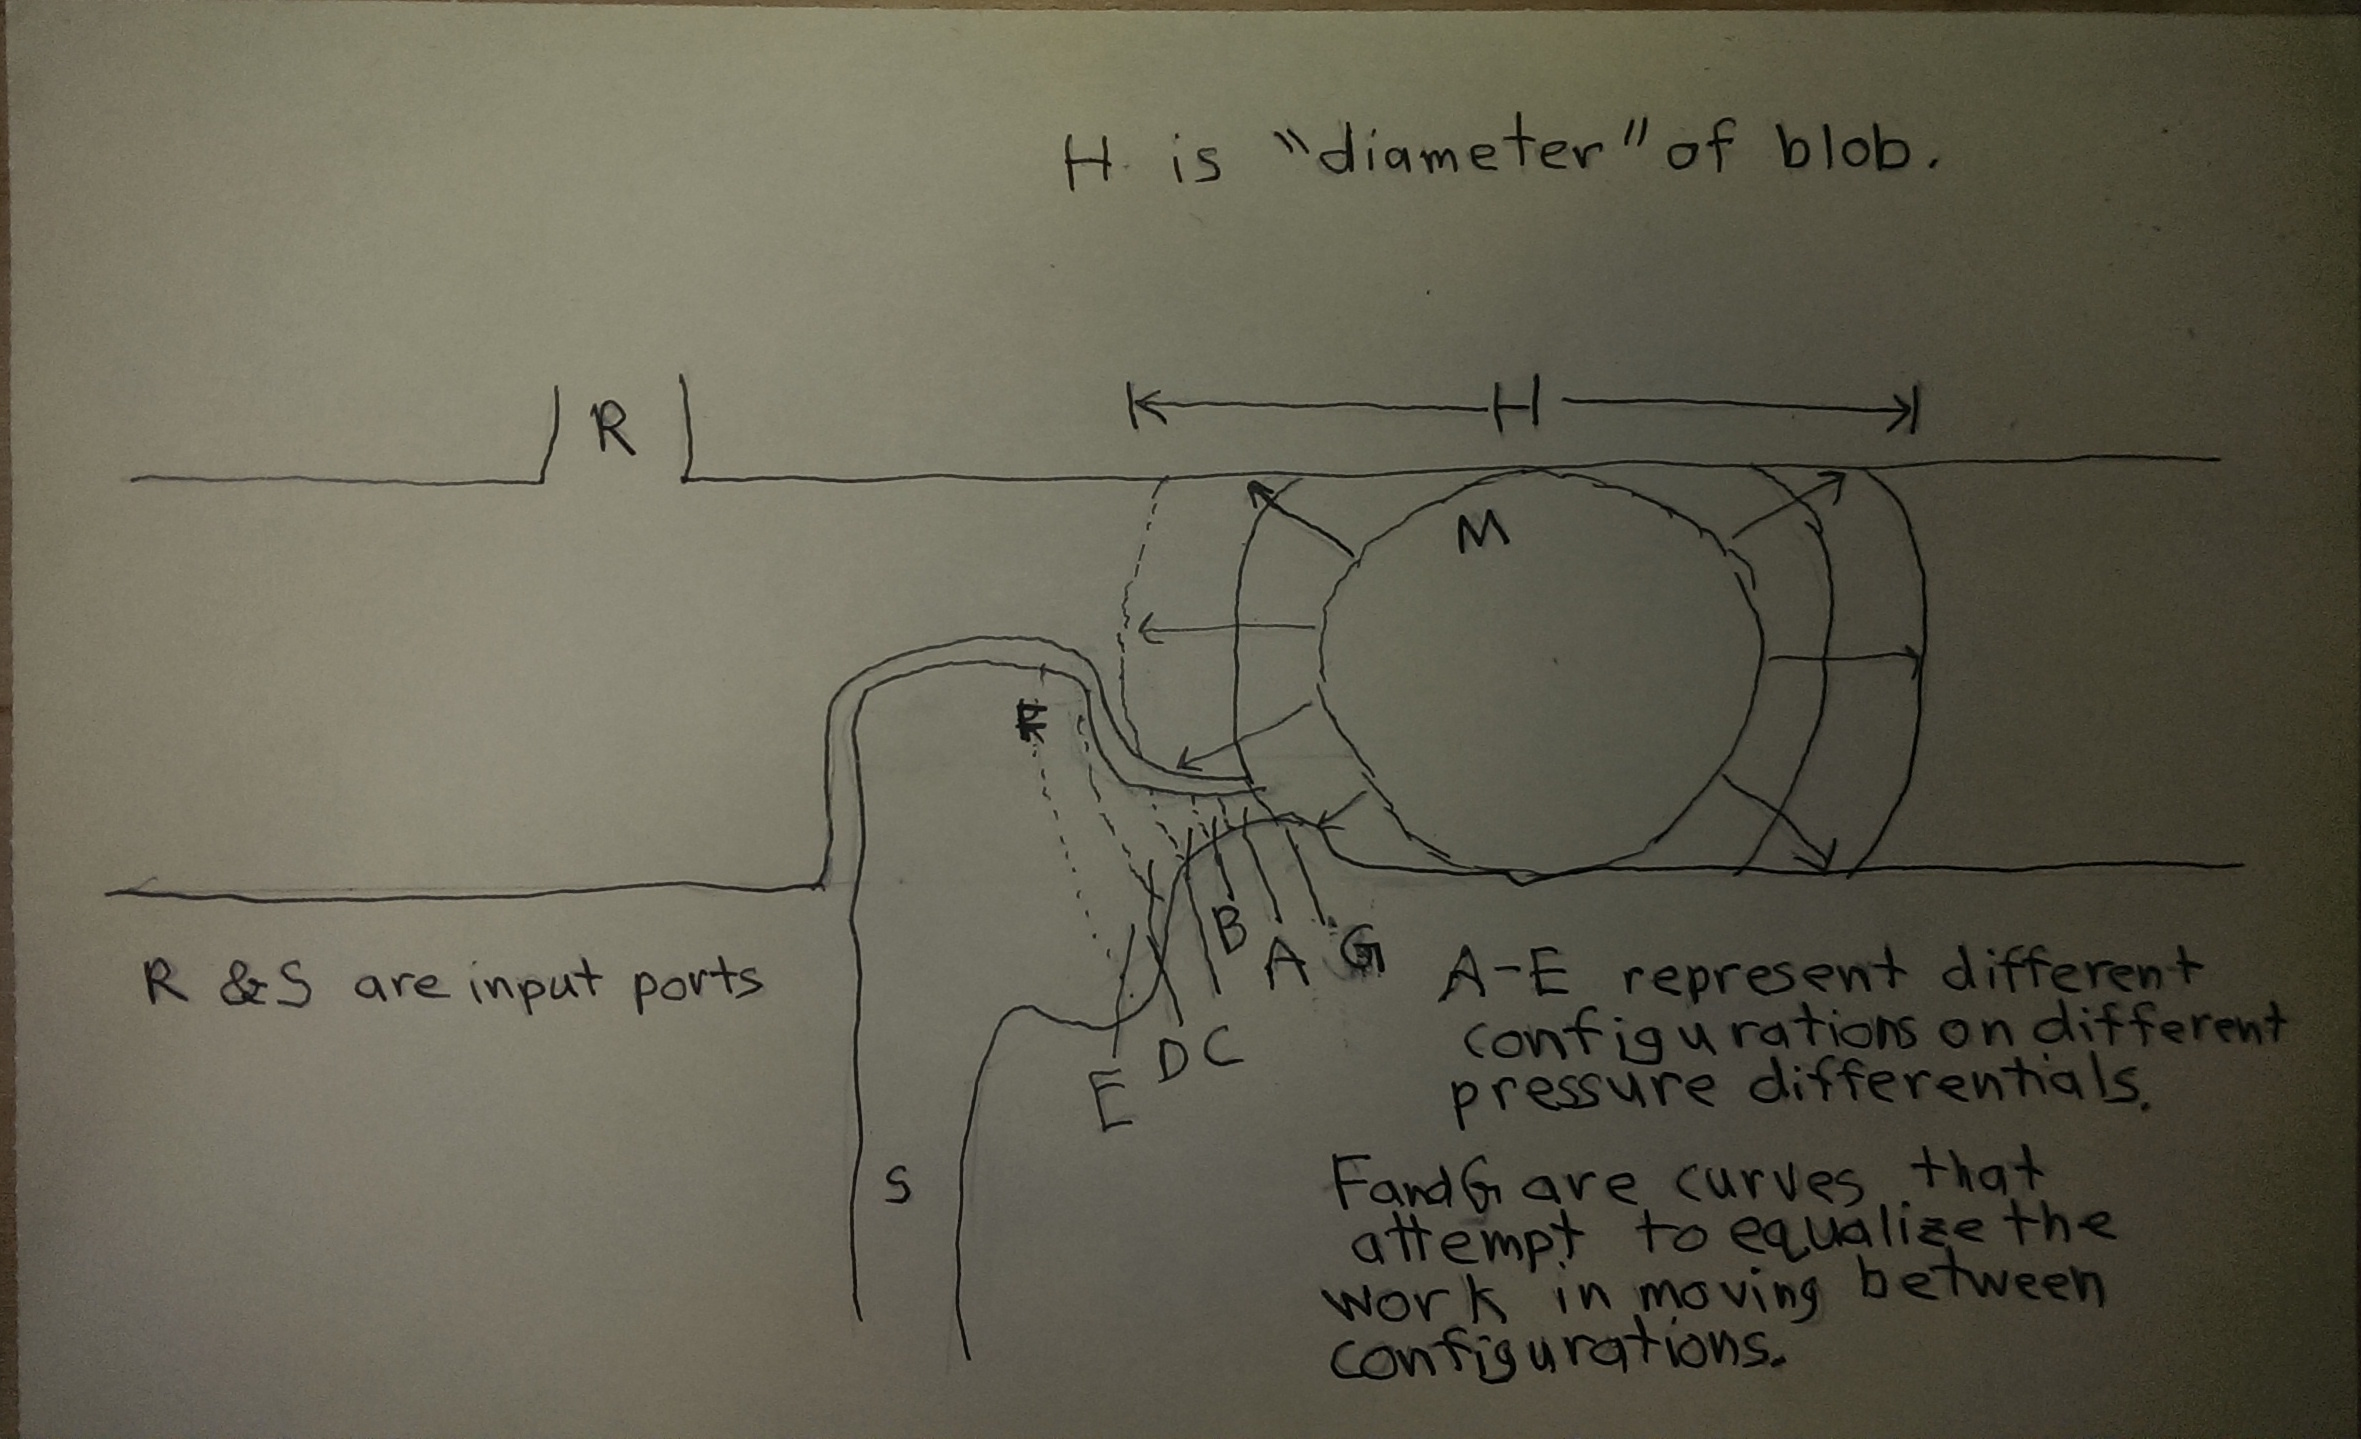 H is "diameter" of blob.
H
R
M
F
B
A
G
R & S are input ports
D
C
E
S
A-E represent different
configurations on different
pressure differentials.
F and G are curves that
attempt to equalize the
work in moving between
configurations.